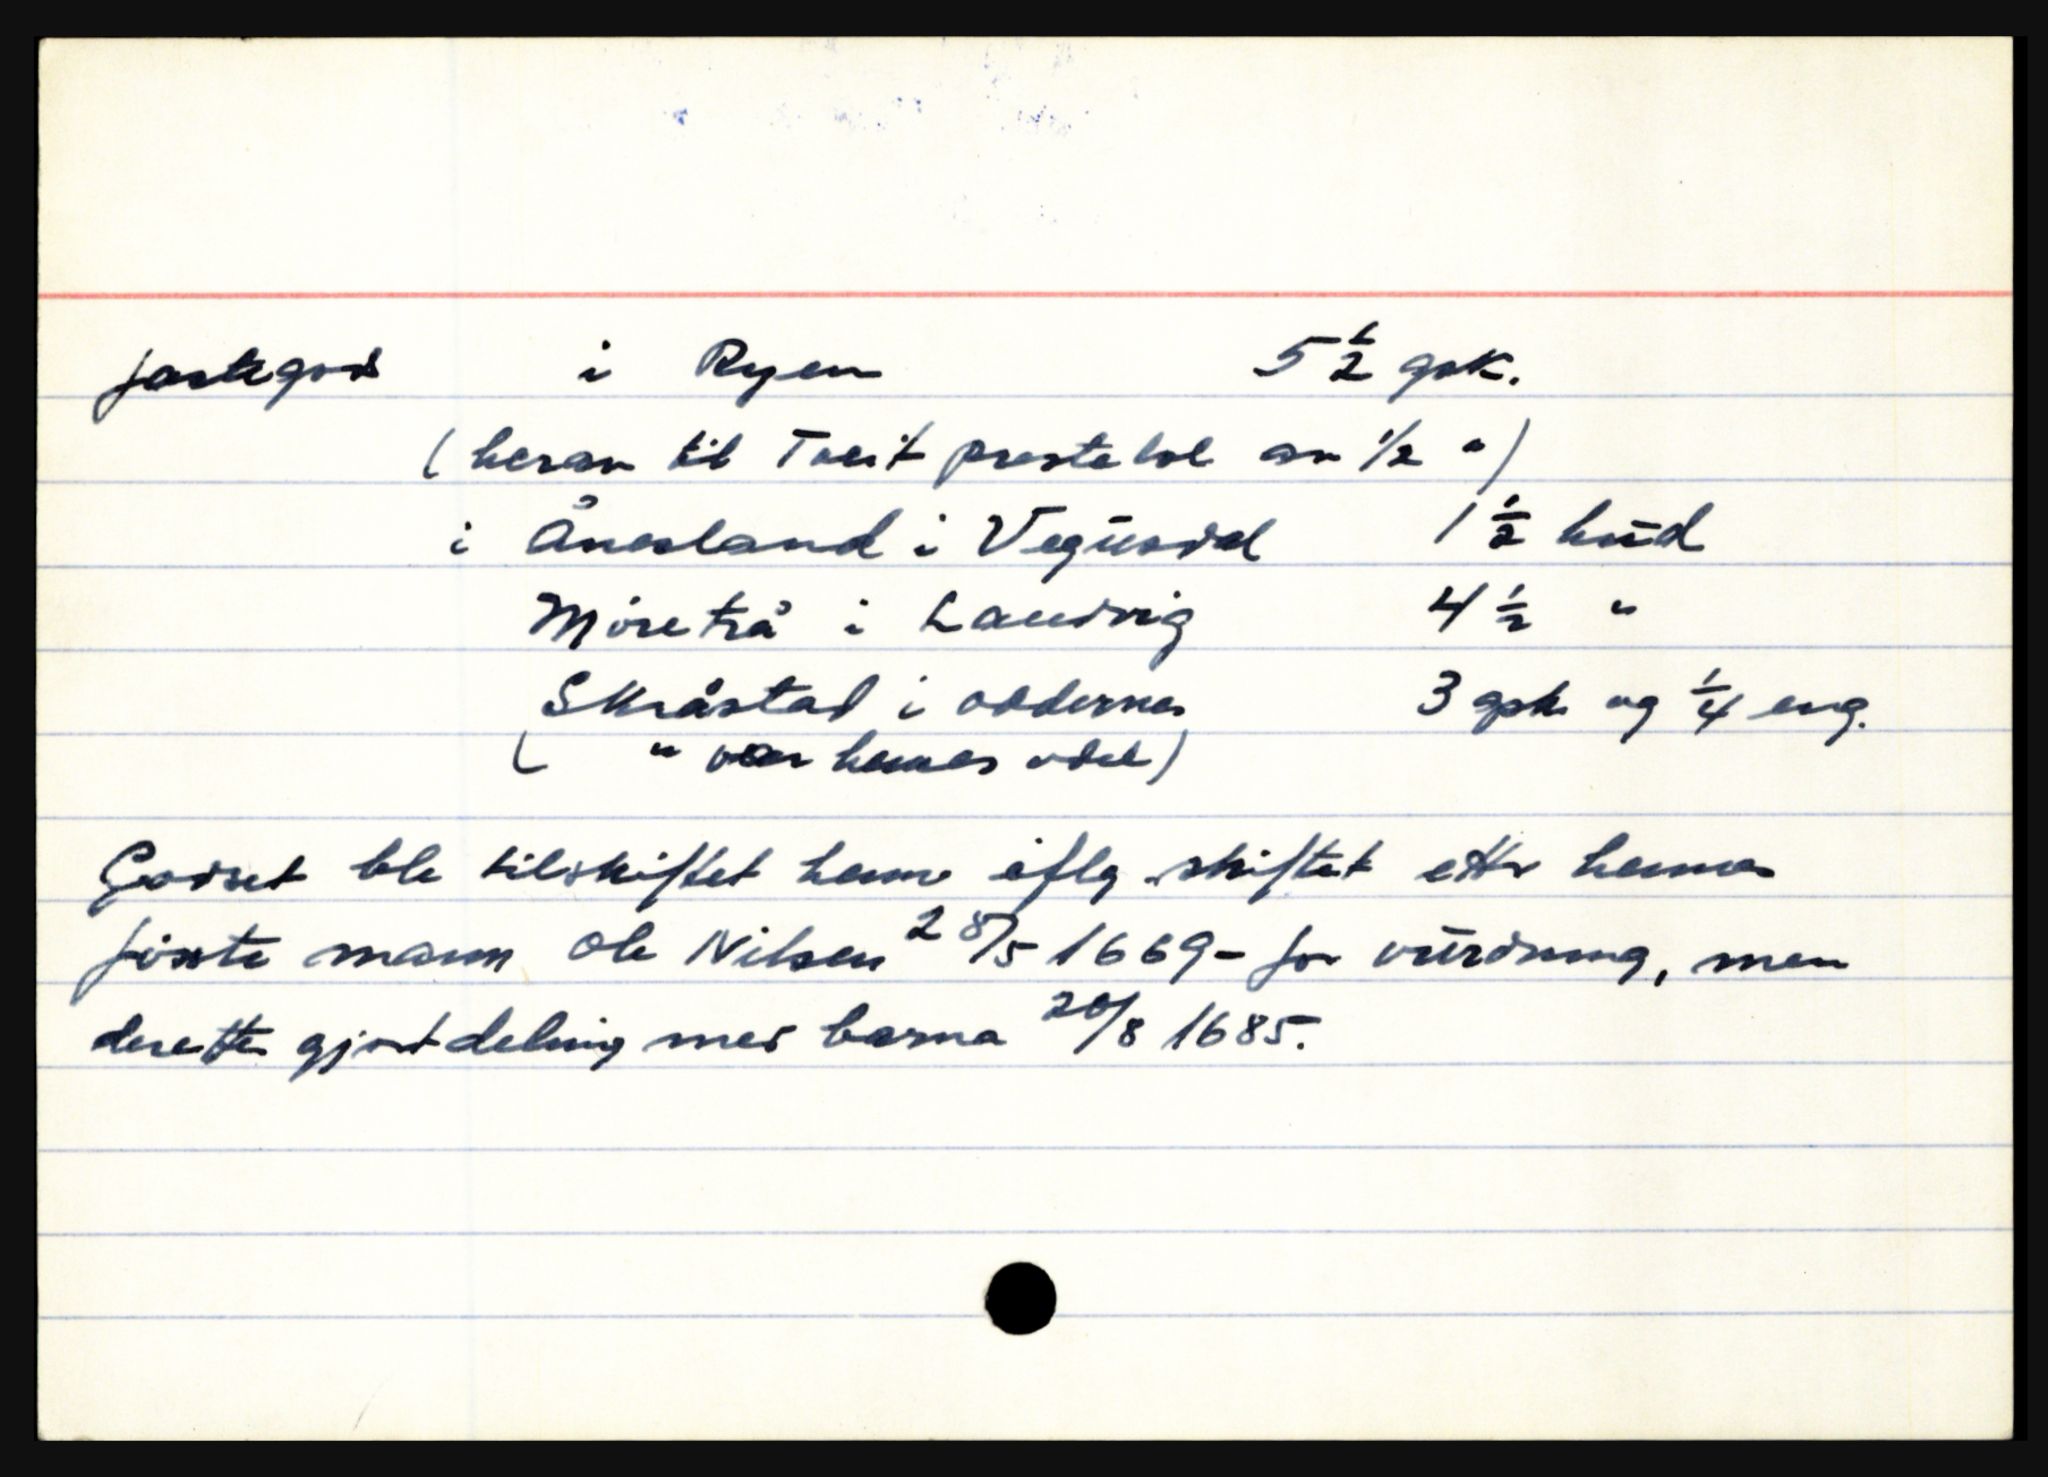 jordegods i Ryen 5 1/2 gsk.
(herav til Tveit prestebol om 1/2 ")
i Ånesland i Vegusdal 1 1/2 hud
Möretrå i Landvig 4 1/2 "
Skråstad i Oddernes 3 gsk og 1/4 eng.
( " var hennes odel)
Godset ble tilskiftet henne iflg. skiftet etter hennes
förste mann Ole Nilsen 28/5 1669 - for vurdning, men
deretter gjort deling med barna 20/8 1685.